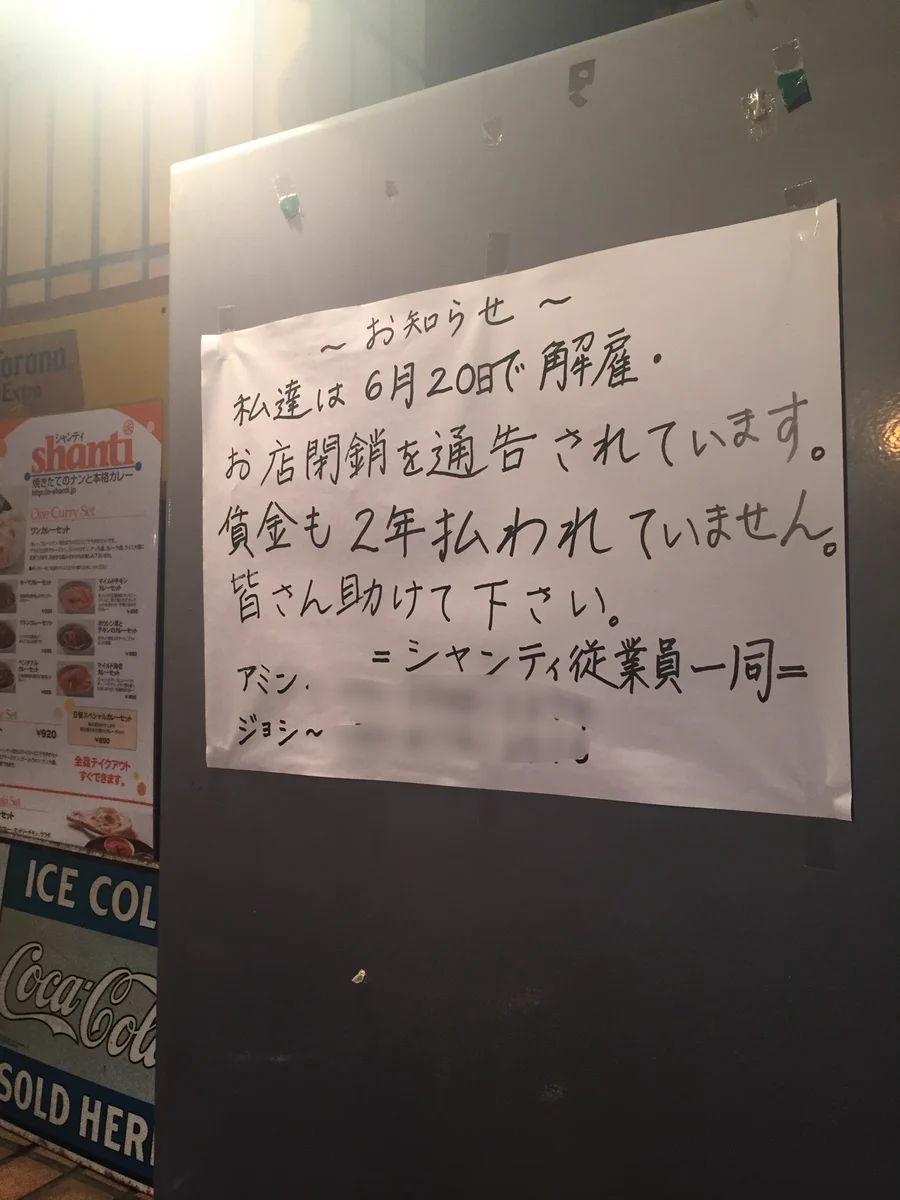 ～お知らせ～
私達は6月20日で解雇・
お店閉鎖を通告されています。
賃金も2年払われていません。
皆さん助けて下さい。
=シャンティ従業員一同=
アミン.
ジョシ～
Corona
Extra
シャンティ
shanti
焼きたてのナンと本格カレー
http://e-shanti.jp
One Curry Set
ワンカレーセット
キーマカレーセット
マイルドチキン
カレーセット
ほうれん草と
チキンのカレーセット
マイルド海老
カレーセット
Set
¥920
日替スペシャルカレーセット
¥800
全品テイクアウト
すぐできます。
Set
セット
ICE COL
Coca-Cola
SOLD HER